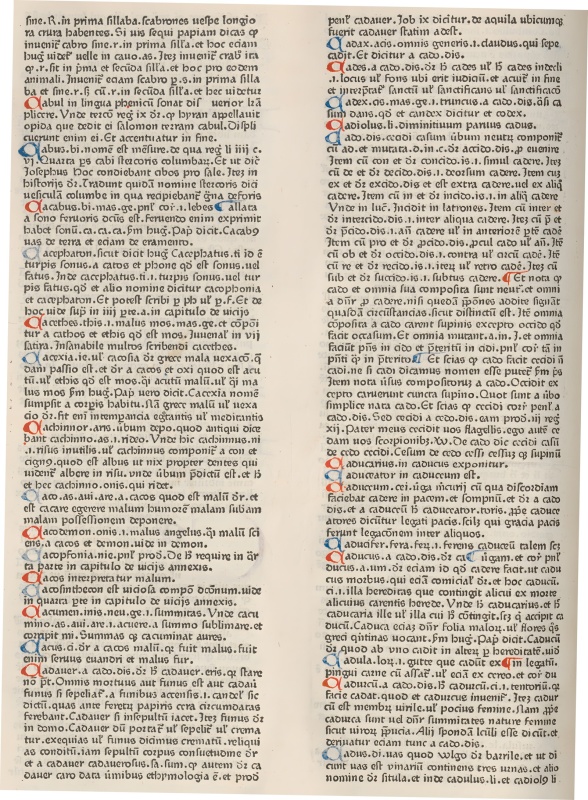 sine.R.in prima sillaba.scabrones uespe longio
ra crura habentes. Si uis sequi papiam dicas ꝙ
inuenit̃ cabro sine.r.in prima sill'a.et hoc eciam
hug᷒ uidet᷑ uelle in cauo.as. Itez inuenit̃ crab̃ i͂ta
animali. Inuenit̃ eciam scabro ꝑ.s.in prima silla
ba et sine.r.
Cabul in lingua phenicũ sonat dis
plicere. Vnde terco reg̃ ix dr̃.ꝙ hyran appellauit
opida que dedit ei salomon terram cabul. Displi
cuerunt enim ei. Et accentuatur in fine.
Cabus.bi.nomẽ est mẽsure.de qua reg̃ li iiij c.
vj. Quarta ꝑs cabi stercoris columbar. Et ut dic̃
Josephus hoc condiebant cibos pro sale. Itez in
historijs dr̃. Tradunt quidã nomine stercoris dici
uesiculã columbe in qua recipiebant̃ g̃na deforis
Cacabus.bi.mas.ge.pnl' cor̃.i.lebes Callata
a sono feruoris dcũs est. feruendo enim exprimit
habet sonũ.ca.ca.ca.ẜm hug̃. Pap̃ dicit. Cacab9
uas de terra et eciam de eramento.
Cacephaton.sicut dicit hug᷒ Cacephatus.ti id ẽ
turpis sonus.a catos et phone qd̃ est sonus.uel
fatus. Inde cacephatus.ti.i.turpis sonus.uel tur
pis fatus.qd̃ et alio nomine dicitur cacophonia
et cacephaton. Et potest scribi ꝑ ph ul' ꝑ.f. Et de
hoc uide suꝑ in iiij ꝑte.a.in capitulo de uicijs
Cacethes.this.i.malus mos.mas.ge.et cõpõit̃
tur a cathos et ethis qd̃ est mos. Iuuenal' in vij
satira. Insanabile multos scribendi cacethes.
Cacexia.ie.ul' cacosia dr̃ grece mala uexacõ.q̃
dam passio est.et dr̃ a cacos et oxi quod est acu
tũ.ul' ethis qd̃ est mos.q̃i acutũ malũ.ul' q̃i ma
lus mos ẜm hug̃. Pap̃ uero dicit. Cacexia nomẽ
sumpsit a corꝑis habitu. Nã grece malũ ul' uexa
cio dr̃.fit eni͂ intemperancia egrantis ul' medicantis
Cachinnor.aris.ubum depo.quod antiqui dice
bant cachinno.as.i.rideo. Vnde hic cachinnus.ni
.i.risus inutilis.ul' cachinnus componit̃ a con et
cign9.quod est albus ut nix propter dentes qui
uident̃ albere in risu.unde ũbum p̃dictũ est.et ħ
et hec cachinno.onis.qui ridet.
Caco.as.aui.are.a.cacos quod est malũ dr̃.et
est cacare egerere malum humorẽ malam subam
malam possessionem deponere.
Cacodemon.onis.i.malus angelus.q̃i malũ sci
ens.a cacos et demon.uide in demon.
Cacopfonia.nie.pnl' prod̃. De ħ require in q̃r
ta parte in capitulo de uicijs annexis.
Cacos interpretatur malum.
Cacosintheton est uiciosa compõ dcõnum.uide
in quarta ꝑte in capitulo de uicijs annexis.
Cacumen.inis.neu.ge.i.summitas. Vnde cacu
mino.as.aui.are.i.acuere.a summo sublimare.et
corripit mi. Summas ꝙ cacuminat aures.
Cacus.ci.dr̃ a cacos malũ.q̃r fuit malus.fuit
enim seruus euandri et malus fur.
Cadauer.a cado.dis.dr̃ ħ cadauer.eris.q̃r stare
nõ pt̃. Omnis mortuus aut funus est aut cadau̾
funus si sepeliat̃.a funibus accensis.i.candel' sic
dictũ.quas ante feretrũ papiris cera circumdatas
ferebant. Cadauer si insepultũ iacet. Itez funus dr̃
in domo. Cadauer dũ portat̃ ul' sepelit̃ ul' crema
tur.exequias ul' funus dicimus crematũ.reliquias
conditũ.iam sepultũ corpus consuetudine dr̃
et a cadauer cadauerosus.sa.sum.q̃ autem dr̃ ca
dauer caro data ũmibus ethymologia ẽ.et prod̃
penl' cadauer. Job ix dicitur.de aquila ubicumqꝫ
fuerit cadauer statim adest.
Cadax.acis.omnis generis.i.claudus.qui sepe
cadit. Et dicitur a cado.dis.
Cades.a cado.dis.dr̃ ħ cades ul' ħ cades indecli
.i.locus ul' fons ubi erit iudiciũ.et acuit̃ in fine
et interp̃tat̃ sanctũ ul' sanctificans ul' sanctificacõ
Cadex.cis.mas.ge.i.truncus.a cado.dis.
sum dans.qd̃ et candex dicitur et codex.
Cadiolus.li.diminitiuum paruus cadus.
Cado.dis.cecidi casum ũbum neutꝝ componit̃
cũ ad.et mutata.d.in.c.dr̃ accido.dis.ꝓ euenire
Item cũ con et dr̃ concido.is.i.simul cadere. Itez
cũ de et dr̃ decido.dis.i.deorsum cadere. Item cuz
ex et dr̃ excido.dis et est extra cadere.uel ex aliq̃
cadere. Item cũ in et dr̃ incido.is.i.in aliq̃ cadere
Vnde in luc̃. Incidit in latrones. Item cũ inter et
dr̃ intercido.dis.i.inter aliqua cadere. Itez cũ p̃ et
dr̃ p̃cido.dis.i.an̄ cadere ul' in anteriorẽ ꝑtẽ cadẽ
Item cũ pro et dr̃ ꝓcido.dis.ꝓcul cado ul' an̄. Itẽ
cũ ob et dr̃ occido.dis.i.contra ul' circũ cadẽ. Itẽ
cũ re et dr̃ recido.is.i.iteꝝ ul' retro cadẽ. Itez cũ
sub et dr̃ succido.is.i.subtus cadere. Et nota ꝙ
cado et omnia sua composita sunt neut̃.et omnia
a dn̄r ꝓ cadere.nisi quedã p̃põnes addite signãt
quasdã circũstancias.sicut distinctũ est. Itẽ omnia
cõposita a cado carent supinis excepto occido qd̃
facit occasum. Et omnia mutant.a.in.i.et omnia
faciũt pn̄s in cido et p̃teritũ in cidi.pnl' cor̃ tã in
pn̄ti q̃ in p̃terito. Et scias ꝙ cado facit cecidi
cadi.ne si cadi dicamus nomen esse putet̃ ẜm p̃s
Item nota ũsus compositoruz a cado. Occidit ex
cepto caruerunt cuncta supino. Quot sunt a ũbo
simplice nata cado. Et scias ꝙ cecidi cor̃ penl' a
cado.dis. Sed cecidi a cedo.dis.eam prod̃.iij reg̃
xij. Pater meus cecidit uos flagellis.ego autẽ ce
dam uos scorpionibz. De cado dic cecidi casũ
de cedo cecidi. Cesum de cedo cessi cessuz ꝙ supinũ
Caducarius.in caducus exponitur.
Caduceator in caduceum est.
Caduceum.cei.ũga ui cuiꝫ cũ qua discordiam
faciebat cadere in pacem.et sompnũ.et dr̃ a cado
dis.et a caduceũ hic caduceator.toris.ꝓpe caduce
atores dicũtur legati pacis.scilꝫ qui gracia pacis
ferunt legacõnem inter aliquos.
Caducifer.fera.fer̃.i.ferens caduceũ talem scꝫ
Caducus.a cado.dis.dr̃ ca ũgam.et cor̃ pnl'
ducus.a.um.dr̃ eciam id qd̃ cadere facit.ut cadu
cus morbus.qui eciã comicial' dr̃.et hoc caducũ.
ci.i.illa hereditas que contingit alicui ex morte
alicuius carentis herede. Vnde ħ caducarius.et ħ
caducaria ille ul' illa cui ħ cõtingit.scꝫ ꝙ accipit ca
ducũ. Caduca eciaz dn̄r folia maloꝝ.ul' flores q̃s
greci q̃ntinas uocant.ẜm hug̃. Pap̃ dicit. Caducũ
dr̃ quod ab vno cadit in alterꝝ ꝑ hereditatẽ.uid̃
Cadula.lor.i.gutte que cadũt ex in legatũ.
pingui carne cũ assat̃.ul' eciã ex cereo.et cor̃ du
Caducũ.a cado.dis.ħ caducũ.ci.i.tentoriũ.q̃r
facie cadat.quod et caducus inuenit̃. Item cadur
cũ est membꝝ uirile.ul' pocius femine. Nam ꝓpe
cadurca sunt uel dn̄r summitates nature femine
sicut uiroꝝ p̃pucia. Alij spondã lculi esse dicũt.et
deriuatur eciam tunc a cado.dis.
Cadus.di.uas quod wlgo dr̃ barrile.et ut di
cunt uas est vinariũ continens tres urnas.et alio
nomine dr̃ situla.et inde cadulus.li.et cadiol9 li